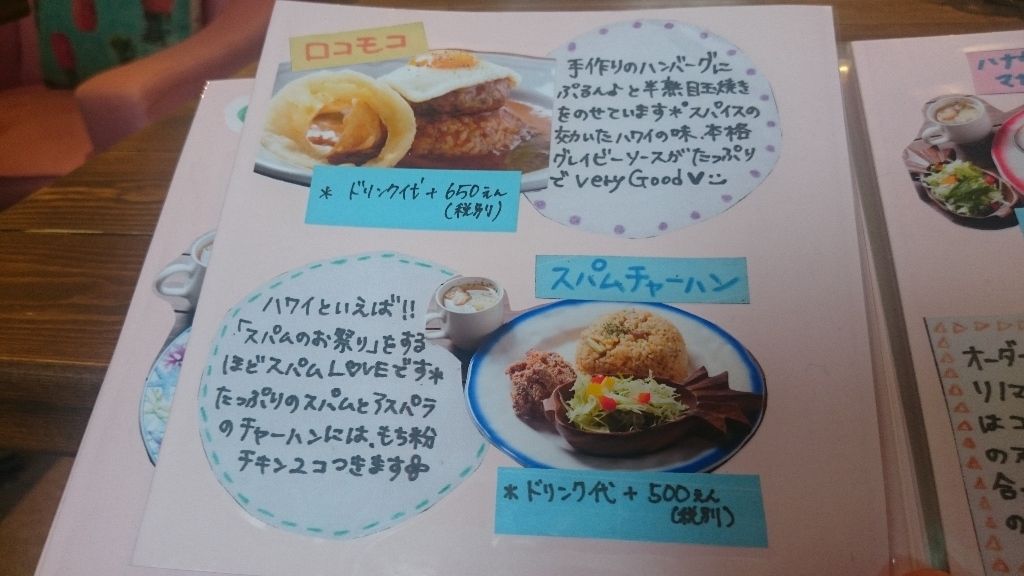 ロコモコ
手作りのハンバーグに
ぷるんよと半熟目玉焼き
をのせています*スパイスの
効いたハワイの味、本格
グレイビーソースがたっぷり
でveryGood♥
* ドリンク代+650えん
(税別)
スパムチャーハン
ハワイといえば!!
「スパムのお祭り」をする
ほどスパムLOVEです*
たっぷりのスパムとアスパラ
のチャーハンには、もち粉
チキン2コつきます
*ドリンク代+500えん
(税別)
オーダー